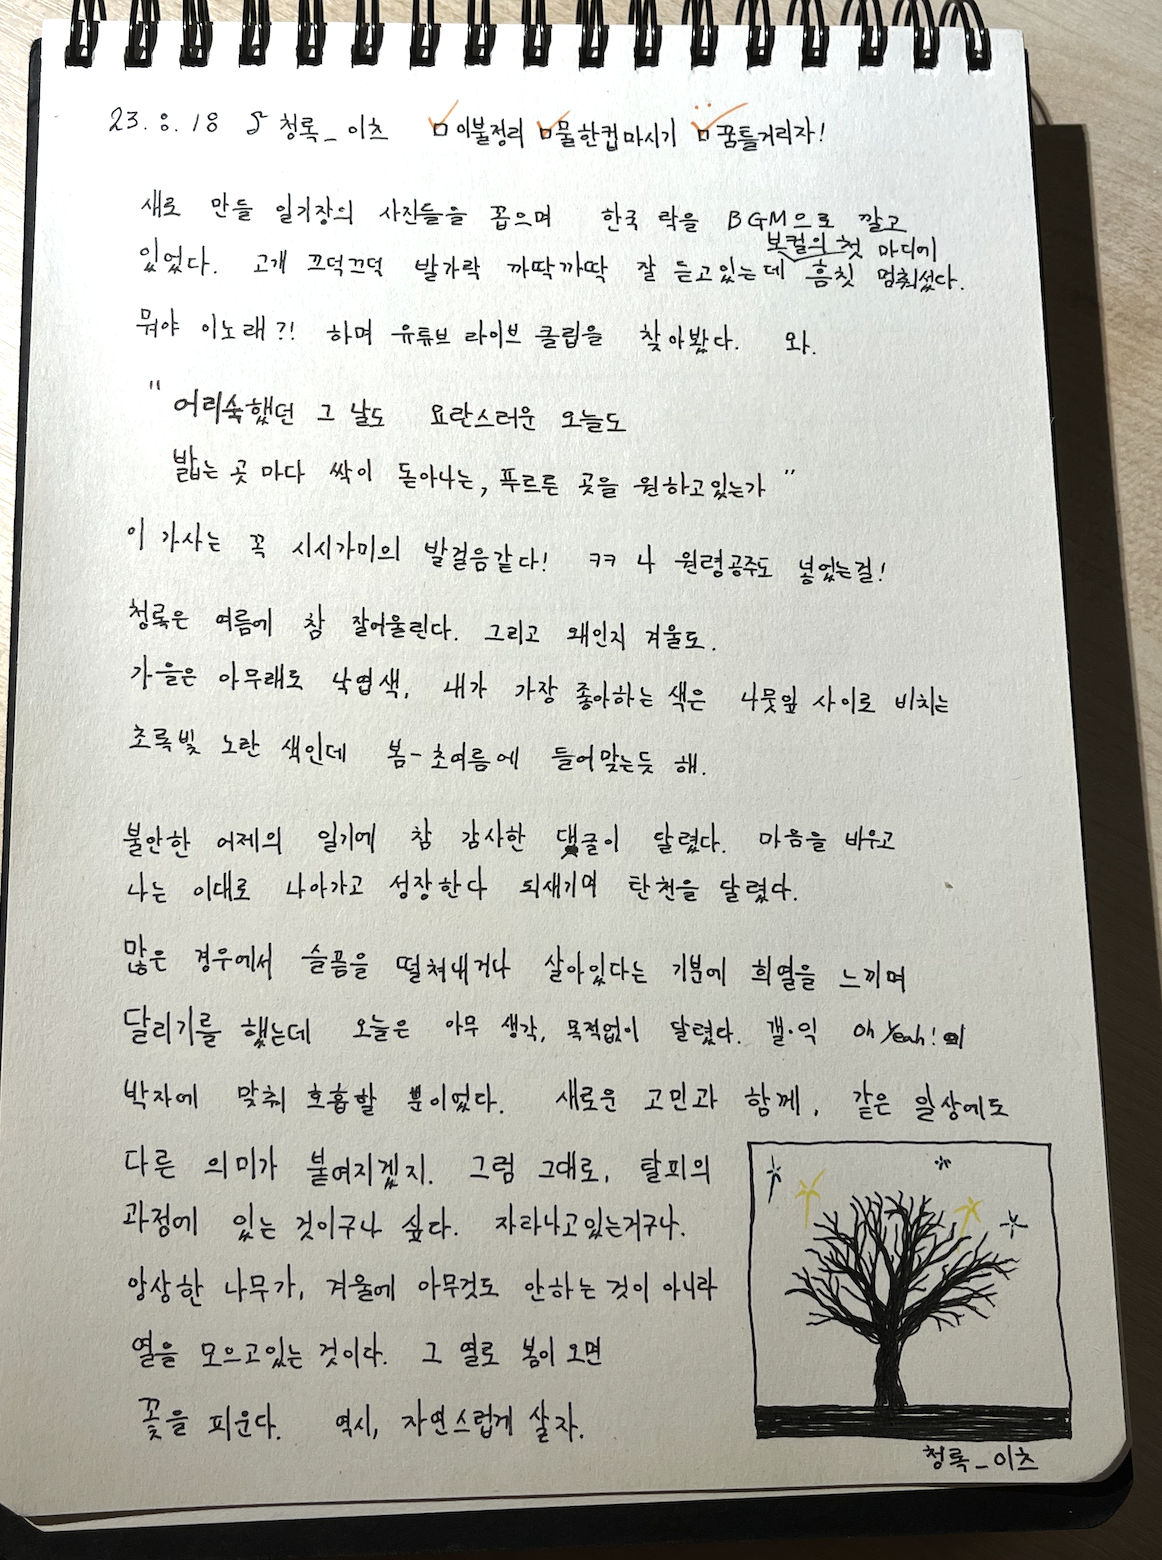 23.8.18 ♪ 청록_이츠 □ 이불정리 □ 물한컵마시기 □ 꿈틀거리자!
새로 만들 일기장의 사진들을 꼽으며 한국 락을 BGM으로 깔고
있었다. 고개 끄덕끄덕 발가락 까딱까딱 잘 듣고있는데 보컬의 첫 마디에 흠칫 멈춰섰다.
뭐야 이노래?! 하며 유튜브 라이브 클립을 찾아봤다. 와.
"어리숙했던 그 날도 요란스러운 오늘도
밟는 곳 마다 싹이 돋아나는, 푸르른 곳을 원하고있는가"
이 가사는 꼭 시시가미의 발걸음같다! ㅋㅋ 나 원령공주도 넣었는걸!
청록은 여름에 참 잘어울린다. 그리고 왜인지 겨울도.
가을은 아무래도 낙엽색, 내가 가장 좋아하는 색은 나뭇잎 사이로 비치는
초록빛 노란 색인데 봄-초여름에 들어맞는듯 해.
불안한 어제의 일기에 참 감사한 댓글이 달렸다. 마음을 비우고
나는 이대로 나아가고 성장한다 되새기며 탄천을 달렸다.
많은 경우에서 슬픔을 떨쳐내거나 살아있다는 기분에 희열을 느끼며
달리기를 했는데 오늘은 아무 생각, 목적없이 달렸다. 갤·익 oh Yeah!의
박자에 맞춰 호흡할 뿐이었다. 새로운 고민과 함께, 같은 일상에도
다른 의미가 붙여지겠지. 그럼 그대로, 탈피의
과정에 있는 것이구나 싶다. 자라나고있는거구나.
앙상한 나무가, 겨울에 아무것도 안하는 것이 아니라
열을 모으고있는 것이다. 그 열로 봄이 오면
꽃을 피운다. 역시, 자연스럽게 살자.
청록_이츠